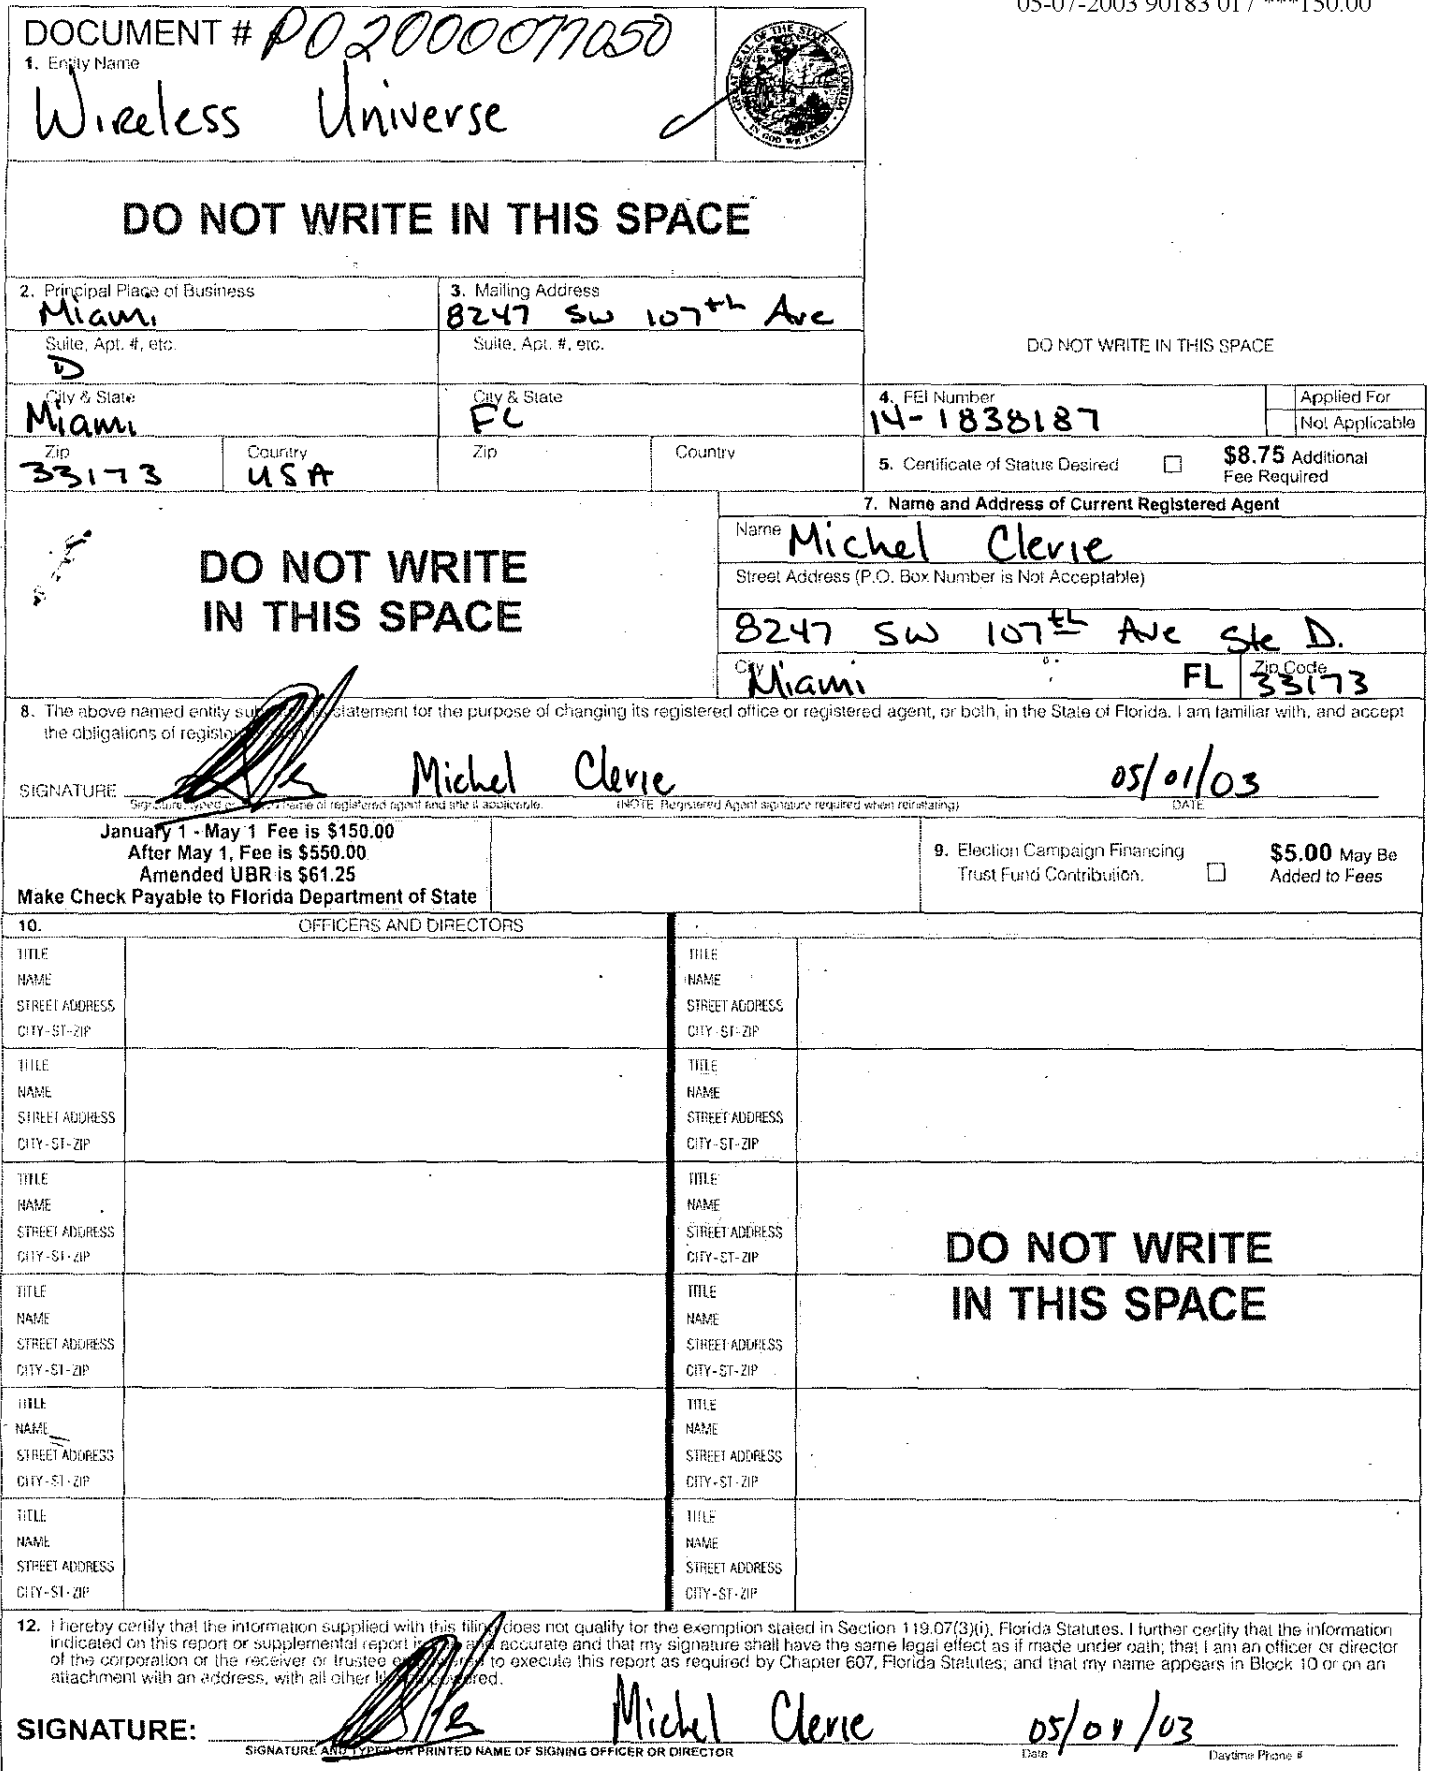 05-07-2003 90183 017 ***150.00
DOCUMENT # P02000077050
1. Entity Name
Wireless Universe
GREAT SEAL OF THE STATE OF FLORIDA
IN GOD WE TRUST
DO NOT WRITE IN THIS SPACE
2. Principal Place of Business
Miami
3. Mailing Address
8247 SW 107th Ave
Suite, Apt. #, etc.
D
Suite, Apt. #, etc.
DO NOT WRITE IN THIS SPACE
City & State
Miami
City & State
FL
4. FEI Number
14-1838187
Applied For
Not Applicable
Zip
33173
Country
USA
Zip
Country
5. Certificate of Status Desired
$8.75 Additional
Fee Required
7. Name and Address of Current Registered Agent
DO NOT WRITE
IN THIS SPACE
Name Michel Clerie
Street Address (P.O. Box Number is Not Acceptable)
8247 SW 107th Ave Ste D.
City Miami FL Zip Code 33173
8. The above named entity statement for the purpose of changing its registered office or registered agent, or both, in the State of Florida. I am familiar with, and accept
the obligations of
SIGNATURE Michel Clerie 05/01/03
Signature, typed or name of registered agent and title if applicable. (NOTE: Registered Agent signature required when reinstating) DATE
January 1 - May 1 Fee is $150.00
After May 1, Fee is $550.00
Amended UBR is $61.25
Make Check Payable to Florida Department of State
9. Election Campaign Financing
Trust Fund Contribution.
$5.00 May Be
Added to Fees
10. OFFICERS AND DIRECTORS
TITLE
NAME
STREET ADDRESS
CITY-ST-ZIP
TITLE
NAME
STREET ADDRESS
CITY-ST-ZIP
TITLE
NAME
STREET ADDRESS
CITY-ST-ZIP
TITLE
NAME
STREET ADDRESS
CITY-ST-ZIP
TITLE
NAME
STREET ADDRESS
CITY-ST-ZIP
TITLE
NAME
STREET ADDRESS
CITY-ST-ZIP
TITLE
NAME
STREET ADDRESS
CITY-ST-ZIP
TITLE
NAME
STREET ADDRESS
CITY-ST-ZIP
TITLE
NAME
STREET ADDRESS
CITY-ST-ZIP
TITLE
NAME
STREET ADDRESS
CITY-ST-ZIP
TITLE
NAME
STREET ADDRESS
CITY-ST-ZIP
TITLE
NAME
STREET ADDRESS
CITY-ST-ZIP
DO NOT WRITE
IN THIS SPACE
12. I hereby certify that the information supplied with this filing does not qualify for the exemption stated in Section 119.07(3)(i), Florida Statutes. I further certify that the information
indicated on this report or supplemental report is accurate and that my signature shall have the same legal effect as if made under oath; that I am an officer or director
of the corporation or the receiver or trustee to execute this report as required by Chapter 607, Florida Statutes; and that my name appears in Block 10 or on an
attachment with an address, with all other
SIGNATURE: Michel Clerie 05/01/03
SIGNATURE AND TYPED OR PRINTED NAME OF SIGNING OFFICER OR DIRECTOR Date Daytime Phone #